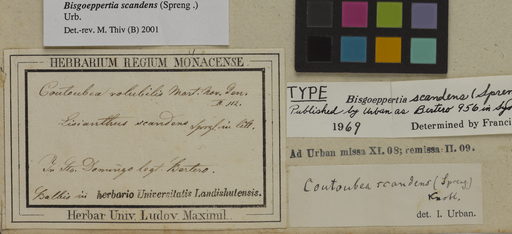 Bisgoeppertia scandens (Spreng .)
Urb.
Det.-rev. M. Thiv (B) 2001
HERBARIUM REGIUM MONACENSE.
Coutoubea volubilis Mart. Nov. Gen.
II. 112.
Lisianthus scandens Spreng. in litt.
In Sto. Domingo legt. Bertero.
Balbis in herbario Universitatis Landishutensis.
Herbar Univ. Ludov Maximil.
TYPE Bisgoeppertia scandens (Spren
Published by Urban as Bertero 956 in Sy
1969 Determined by Franci
Ad Urban missa XI. 08; remissa II. 09.
Coutoubea scandens (Spreng)
det. I. Urban.